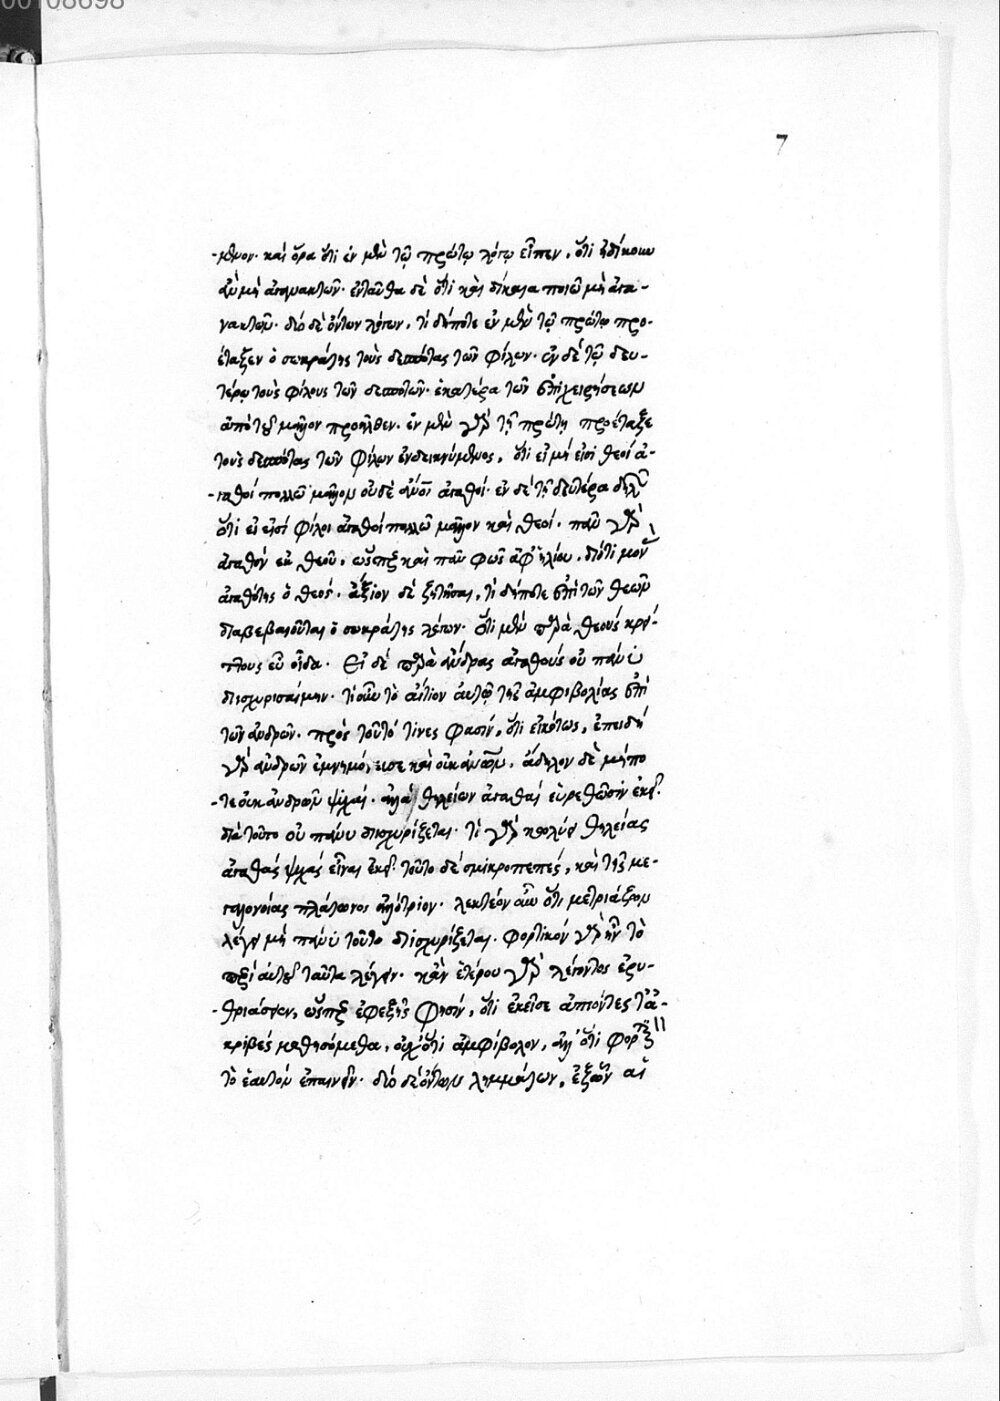 00108698
7
-μενον. καὶ ὅρα ὅτι ἐν μὲν τῷ πρώτῳ λόγῳ εἶπεν, ὅτι ἠδίκουν
ἂν μὴ ἀγανακτῶν. ἐνταῦθα δὲ ὅτι καὶ δίκαια ποιῶ μὴ ἀγα-
νακτῶν. δύο δὲ ὄντων λόγων, τί δήποτε ἐν μὲν τῷ πρώτῳ προ-
έταξεν ὁ σωκράτης τοὺς δεσπότας τῶν φίλων. ἐν δὲ τῷ δευ-
τέρῳ τοὺς φίλους τῶν δεσποτῶν. ἑκατέρα τῶν ἐπιχειρήσεων
ἀπὸ τοῦ μᾶλλον προῆλθεν. ἐν μὲν γὰρ τῇ πρώτῃ προέταξε
τοὺς δεσπότας τῶν φίλων ἐνδεικνύμενος, ὅτι εἰ μή εἰσι θεοὶ ἀ-
-γαθοὶ πολλῷ μᾶλλον οὐδὲ ἄνοι ἀγαθοί. ἐν δὲ τῇ δευτέρα δηλῶν
ὅτι εἰ εἰσὶ φίλοι ἀγαθοὶ πολλῷ μᾶλλον καὶ θεοί. πᾶν γὰρ
ἀγαθὸν ἐκ θεοῦ, ὥσπερ καὶ πᾶν φῶς ἀφ' ἡλίου. διότι μόνον
ἀγαθότης ὁ θεός. ἄξιον δὲ ζητῆσαι, τί δήποτε ἐπὶ τῶν θεῶν
διαβεβαιοῦται ὁ σωκράτης λέγων. ὅτι μὲν παρὰ θεοὺς κρεί-
ττους εὖ οἶδα. Εἰ δὲ παρὰ ἄνδρας ἀγαθοὺς οὐ πάνυ
διισχυρισαίμην. τί οὖν τὸ αἴτιον αὐτῷ τῆς ἀμφιβολίας ἐπὶ
τῶν ἀνδρῶν. πρὸς τοῦτό τινες φασίν, ὅτι εἰκότως, ἐπειδὴ
γὰρ ἀνδρῶν ἐμνημόνευσε καὶ οὐκ ἀνων, ἄδηλον δὲ μήπο
-τε οὐκ ἀνδρῶν ψυχαὶ. ἀλλὰ θηλείων ἀγαθαὶ εὑρεθῶσιν ἐκεῖ.
διὰ τοῦτο οὐ πάνυ διισχυρίζεται. τί γὰρ κωλύει θηλείας
ἀγαθὰς ψυχὰς εἶναι ἐκεῖ. τοῦτο δὲ σμικροπρεπές, καὶ τῆς με-
γαλονοίας πλάτωνος ἀλλότριον. λεκτέον οὖν ὅτι μετριάζων
λέγει μὴ πάνυ τοῦτο διισχυρίζεται. φορτικὸν γὰρ ἦν τὸ
περὶ αὑτοῦ ταῦτα λέγειν. κἂν ἑτέρου γὰρ λέγοντος ἐρυ-
-θριάσειεν, ὥσπερ ἐφεξῆς φησίν, ὅτι ἐκεῖσε ἀπιόντες τἀ-
κριβὲς μαθησόμεθα, οὐχ' ὅτι ἀμφίβολον, ἀλλ' ὅτι φορτι
τὸ ἑαυτὸν ἐπαινεῖν. δύο δὲ ὄντων λημμάτων, ἐξ ὧν αἱ